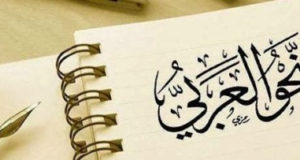 نحو العربي